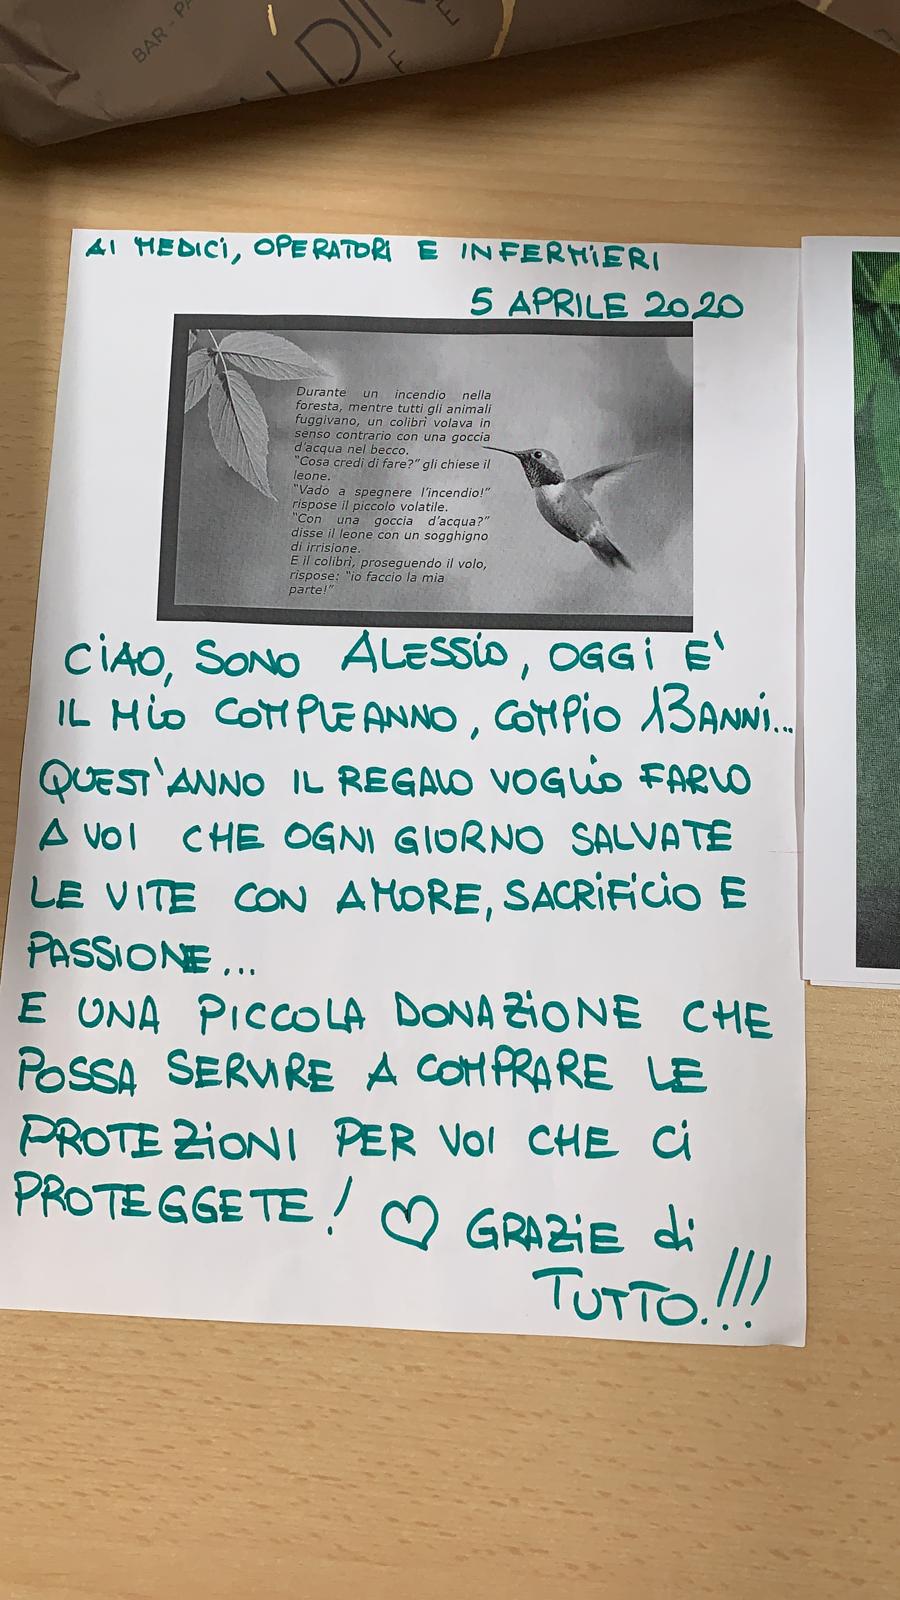 BAR - PA
ALDIN
AI MEDICI, OPERATORI E INFERMIERI
5 APRILE 2020
Durante un incendio nella
foresta, mentre tutti gli animali
fuggivano, un colibrì volava in
senso contrario con una goccia
d'acqua nel becco.
"Cosa credi di fare?" gli chiese il
leone.
"Vado a spegnere l'incendio!"
rispose il piccolo volatile.
"Con una goccia d'acqua?"
disse il leone con un sogghigno
di irrisione.
E il colibrì, proseguendo il volo,
rispose: "io faccio la mia
parte!"
CIAO, SONO ALESSIO, OGGI E'
IL MIO COMPLEANNO, COMPIO 13 ANNI...
QUEST'ANNO IL REGALO VOGLIO FARLO
A VOI CHE OGNI GIORNO SALVATE
LE VITE CON AMORE, SACRIFICIO E
PASSIONE...
E UNA PICCOLA DONAZIONE CHE
POSSA SERVIRE A COMPRARE LE
PROTEZIONI PER VOI CHE CI
PROTEGGETE! ♡ GRAZIE di
TUTTO.!!!